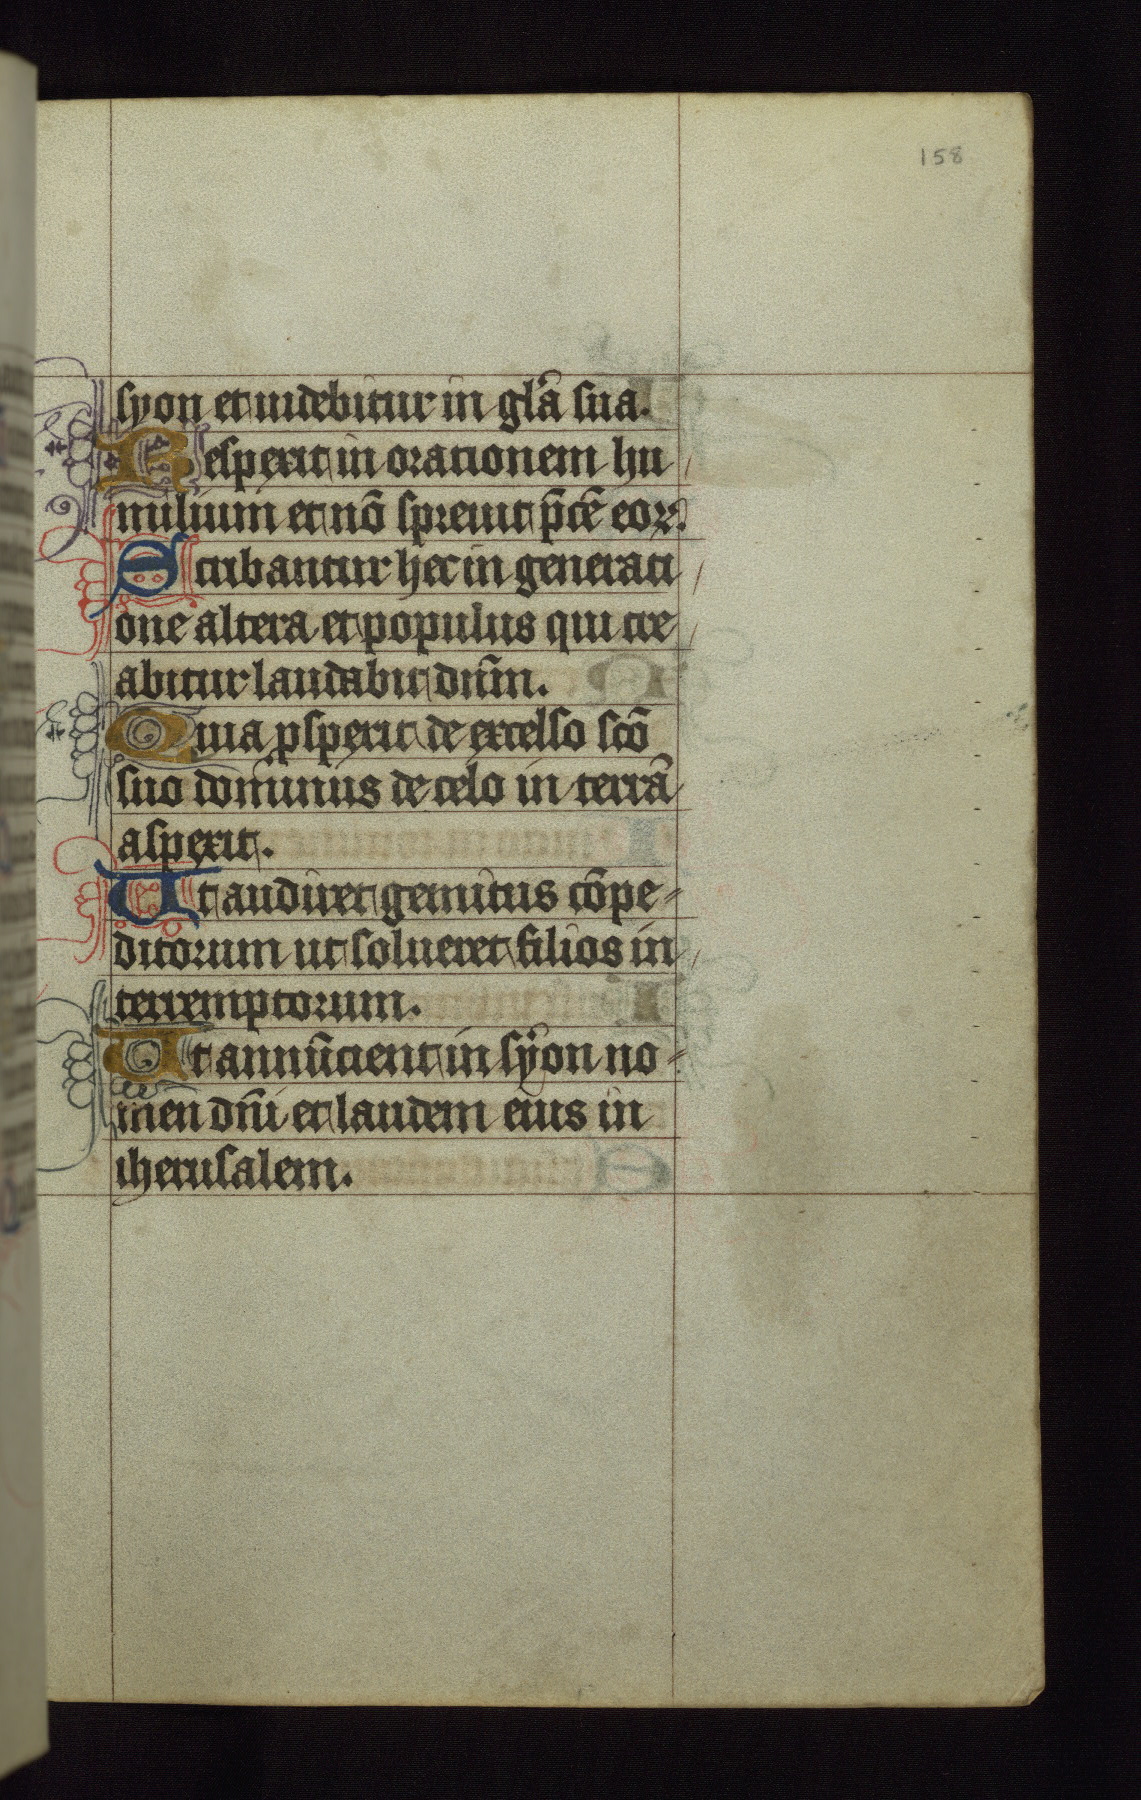 158
syon et uidebitur in gl̄a sua.
Respexit in orationem hu
milium et nō spreuit p̄cē eoꝝ.
Scribantur hec in generati
one altera et populus qui cre
abitur laudabit dn̄m.
Quia ꝓspexit de excelso scō
suo dominus de celo in terrā
aspexit.
Ut audiret gemitus cōpe
ditorum ut solueret filios in
terremptorum.
Ut annūcient in syon no
men dn̄i et laudem eius in
iherusalem.